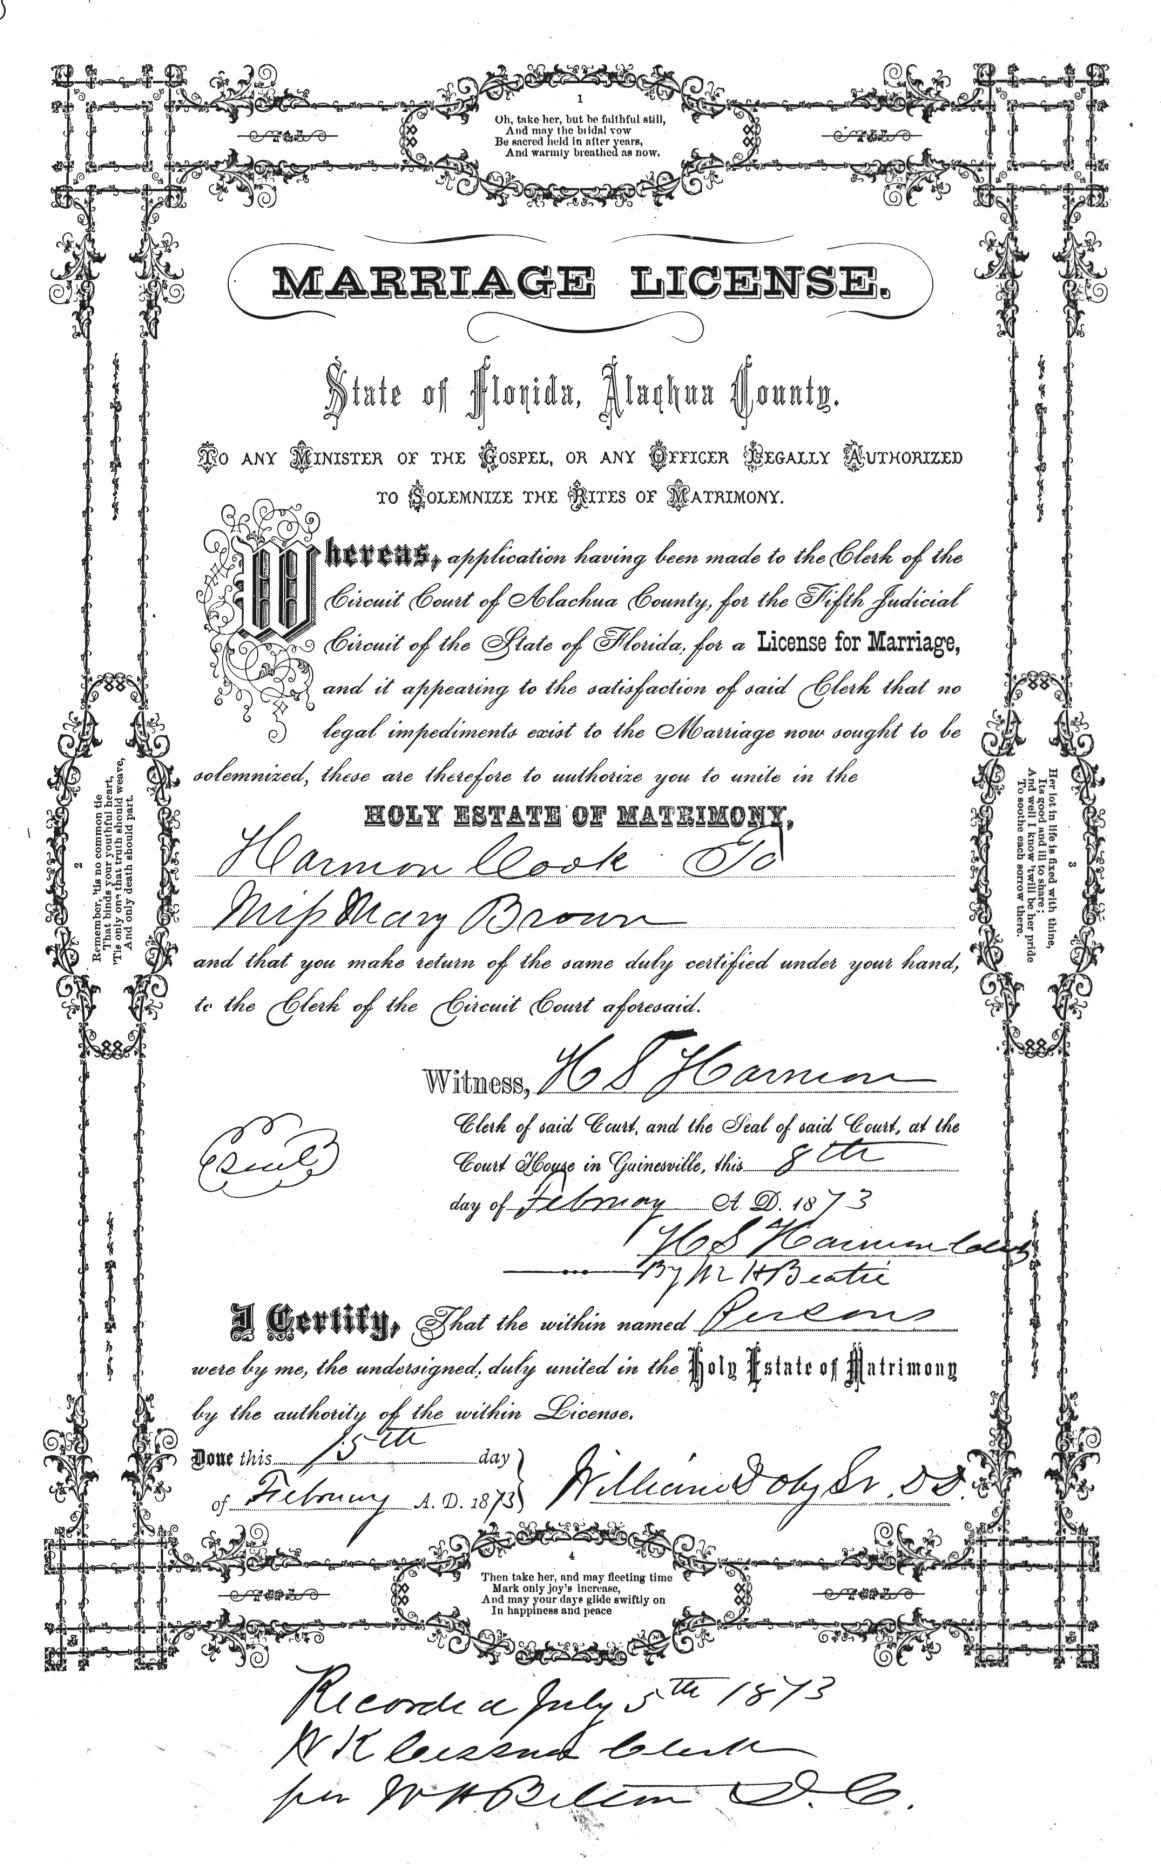 1
Oh, take her, but be faithful still,
And may the bridal vow
Be sacred held in after years,
And warmly breathed as now.
MARRIAGE LICENSE.
State of Florida, Alachua County.
TO ANY MINISTER OF THE GOSPEL, OR ANY OFFICER LEGALLY AUTHORIZED
TO SOLEMNIZE THE RITES OF MATRIMONY.
Whereas, application having been made to the Clerk of the
Circuit Court of Alachua County, for the Fifth Judicial
Circuit of the State of Florida, for a License for Marriage,
and it appearing to the satisfaction of said Clerk that no
legal impediments exist to the Marriage now sought to be
solemnized, these are therefore to authorize you to unite in the
HOLY ESTATE OF MATRIMONY,
Harmon Cook To
Miss Mary Brown
and that you make return of the same duly certified under your hand,
to the Clerk of the Circuit Court aforesaid.
Witness, H S Harmon
Clerk of said Court, and the Seal of said Court, at the
Court House in Gainesville, this 8th
day of February A. D. 1873
Seal
H S Harmon Clerk
By W H Beatie
I Certify, That the within named Persons
were by me, the undersigned, duly united in the Holy Estate of Matrimony
by the authority of the within License.
Done this 15th day
of February A. D. 1873
William Sr. D.D.
2
Remember, 'tis no common tie
That binds your youthful heart,
'Tis only one that truth should weave,
And only death should part.
3
Her lot in life is fixed with thine,
Its good and ill to share;
And well I know 'twill be her pride
To soothe each sorrow there.
4
Then take her, and may fleeting time
Mark only joy's increase,
And may your days glide swiftly on
In happiness and peace
Recorded July 5th 1873
Cessna Clerk
per W H Belton D. C.